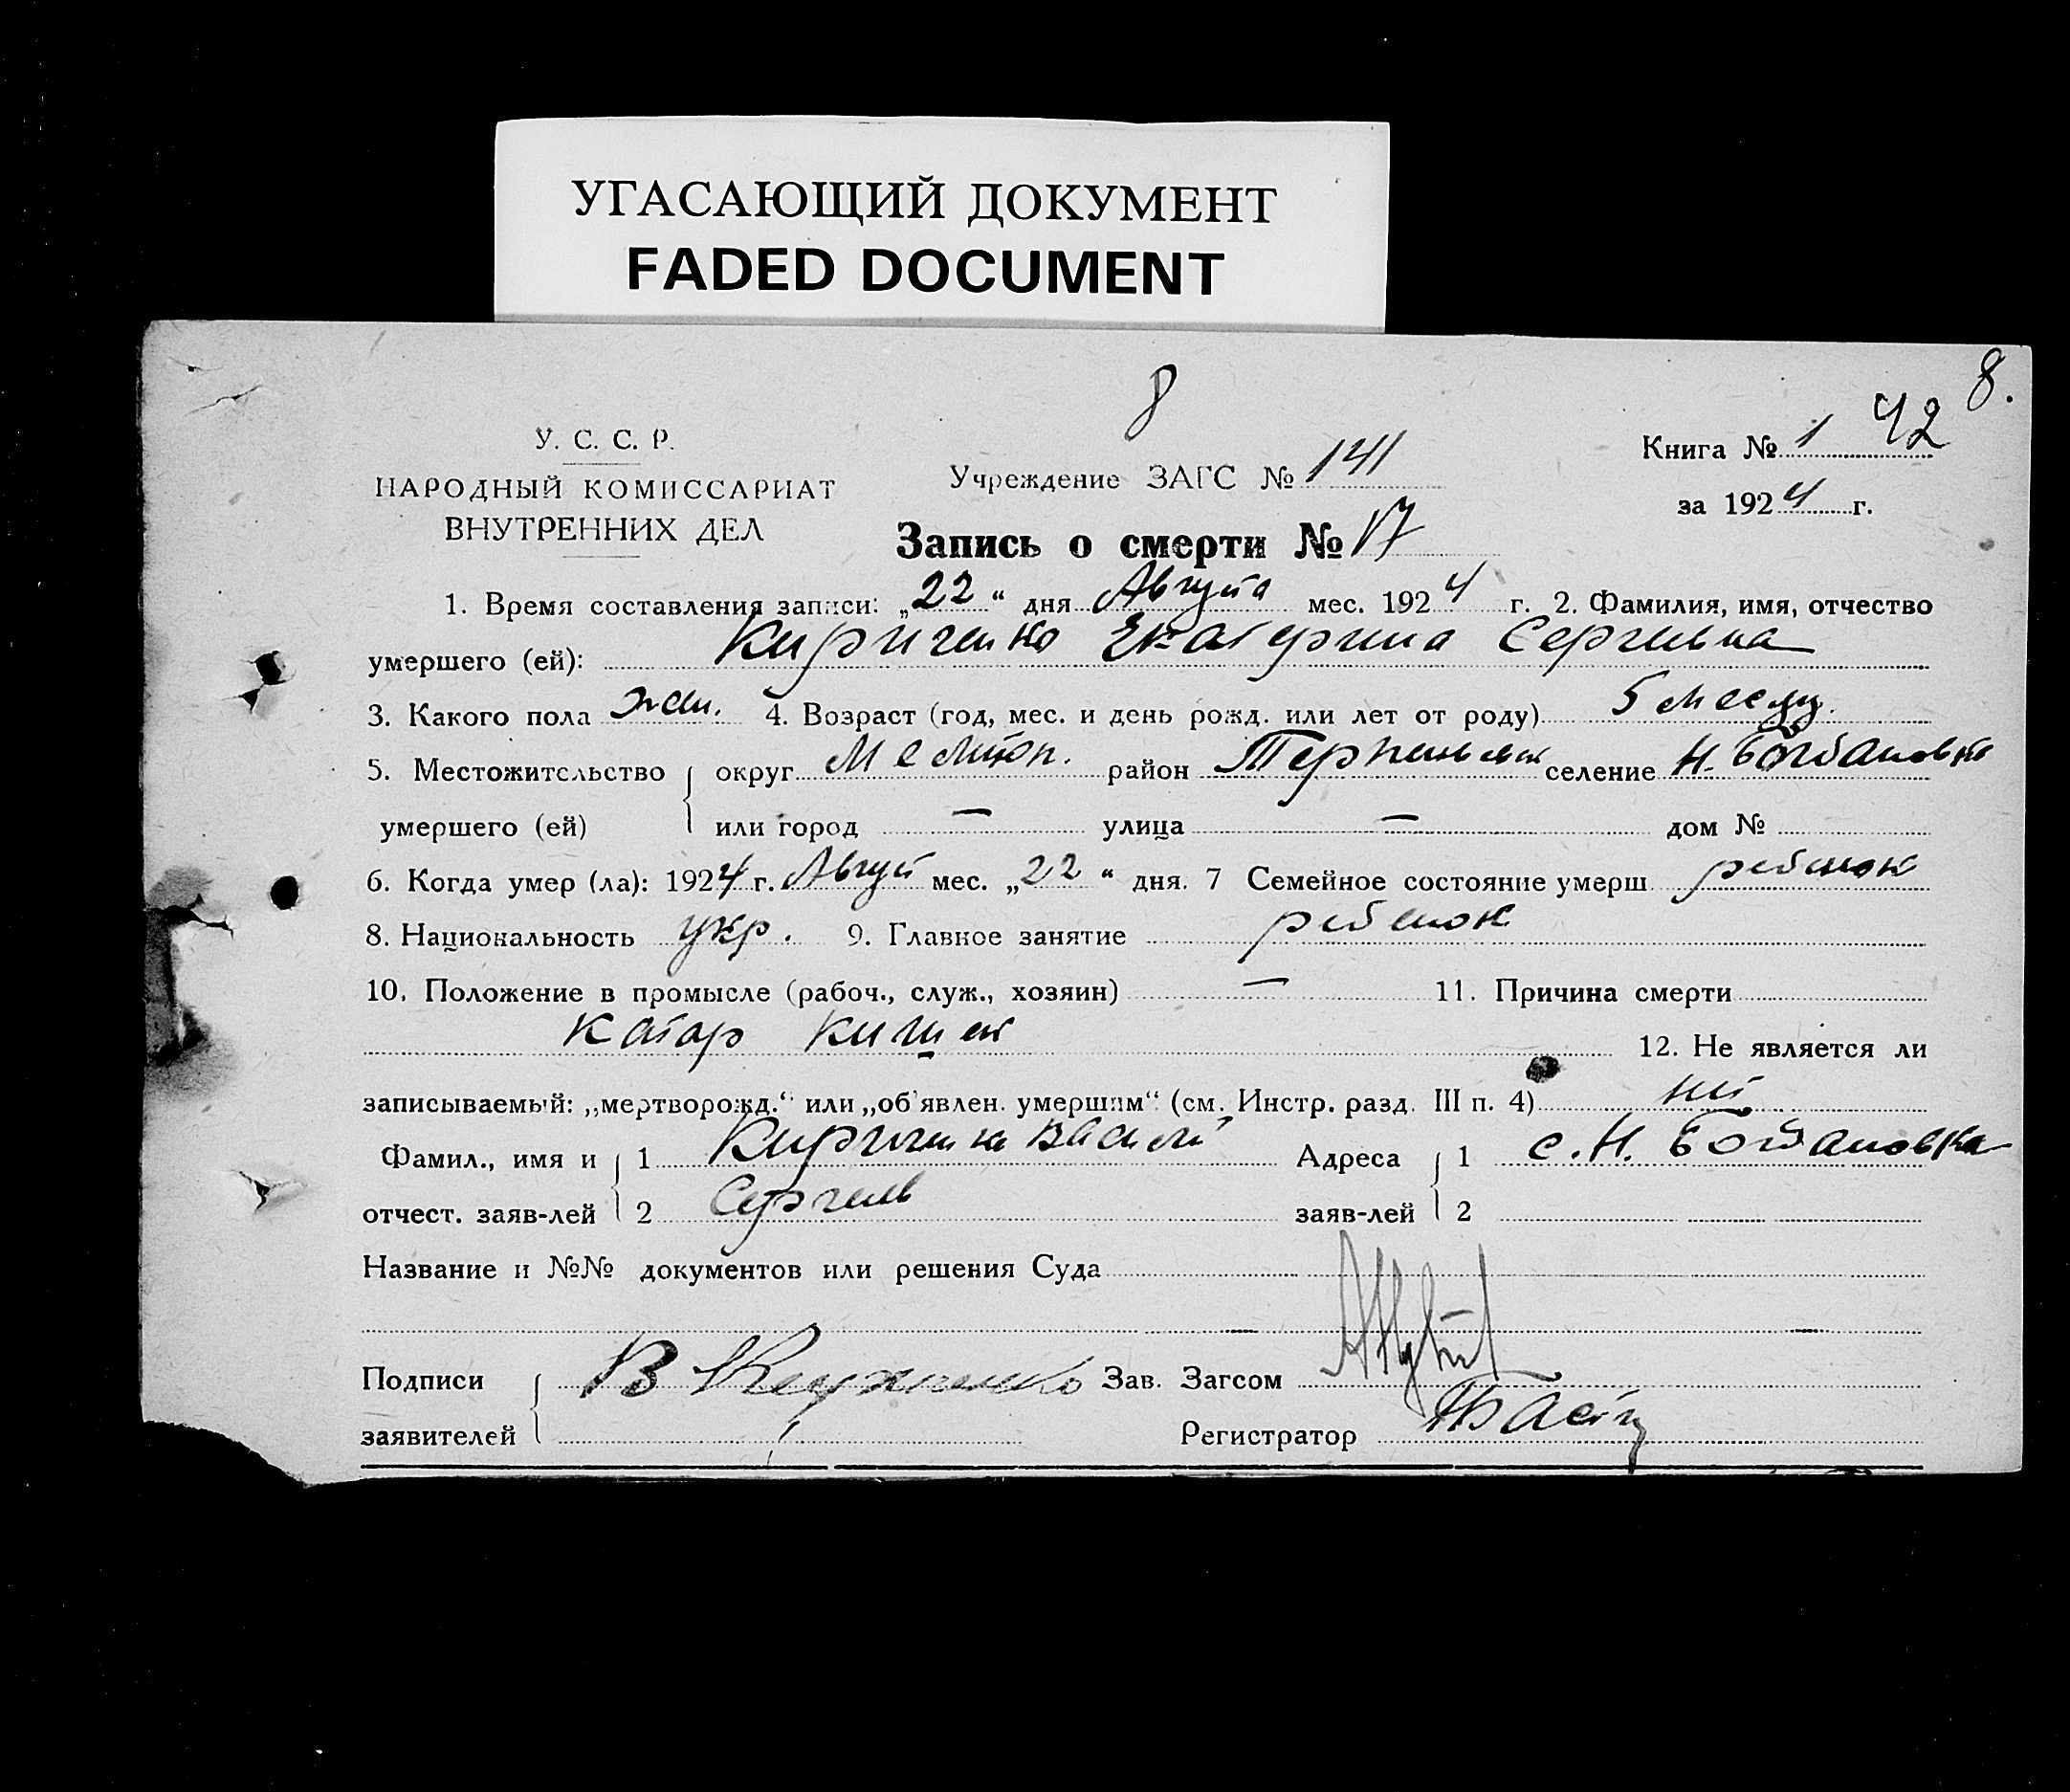 УГАСАЮЩИЙ ДОКУМЕНТ
FADED DOCUMENT
8
8.
42
У. С. С. Р.
НАРОДНЫЙ КОМИССАРИАТ
ВНУТРЕННИХ ДЕЛ
Учреждение ЗАГС № 141
Книга № 1
за 1924 г.
Запись о смерти № 17
1. Время составления записи: „22“ дня Августа мес. 1924 г. 2. Фамилия, имя, отчество
умершего (ей): Кириченко Екатерина Сергеевна
3. Какого пола жен. 4. Возраст (год, мес. и день рожд. или лет от роду) 5 месяц.
5. Местожительство округ Мелитоп. район Терпеньевск селение Н. Богдановка
умершего (ей) или город — улица — дом №
6. Когда умер (ла): 1924 г. Август мес. „22“ дня. 7 Семейное состояние умерш. ребенок
8. Национальность укр. 9. Главное занятие ребенок
10. Положение в промысле (рабоч., служ., хозяин) — 11. Причина смерти
Катар кишек 12. Не является ли
записываемый: „мертворожд.“ или „об'явлен. умершим“ (см. Инстр. разд. III п. 4) нет
Фамил., имя и 1 Кириченко Василий Адреса 1 с. Н. Богдановка
отчест. заяв-лей 2 Сергеев заяв-лей 2
Название и №№ документов или решения Суда
Подписи В Зав. Загсом
заявителей Регистратор